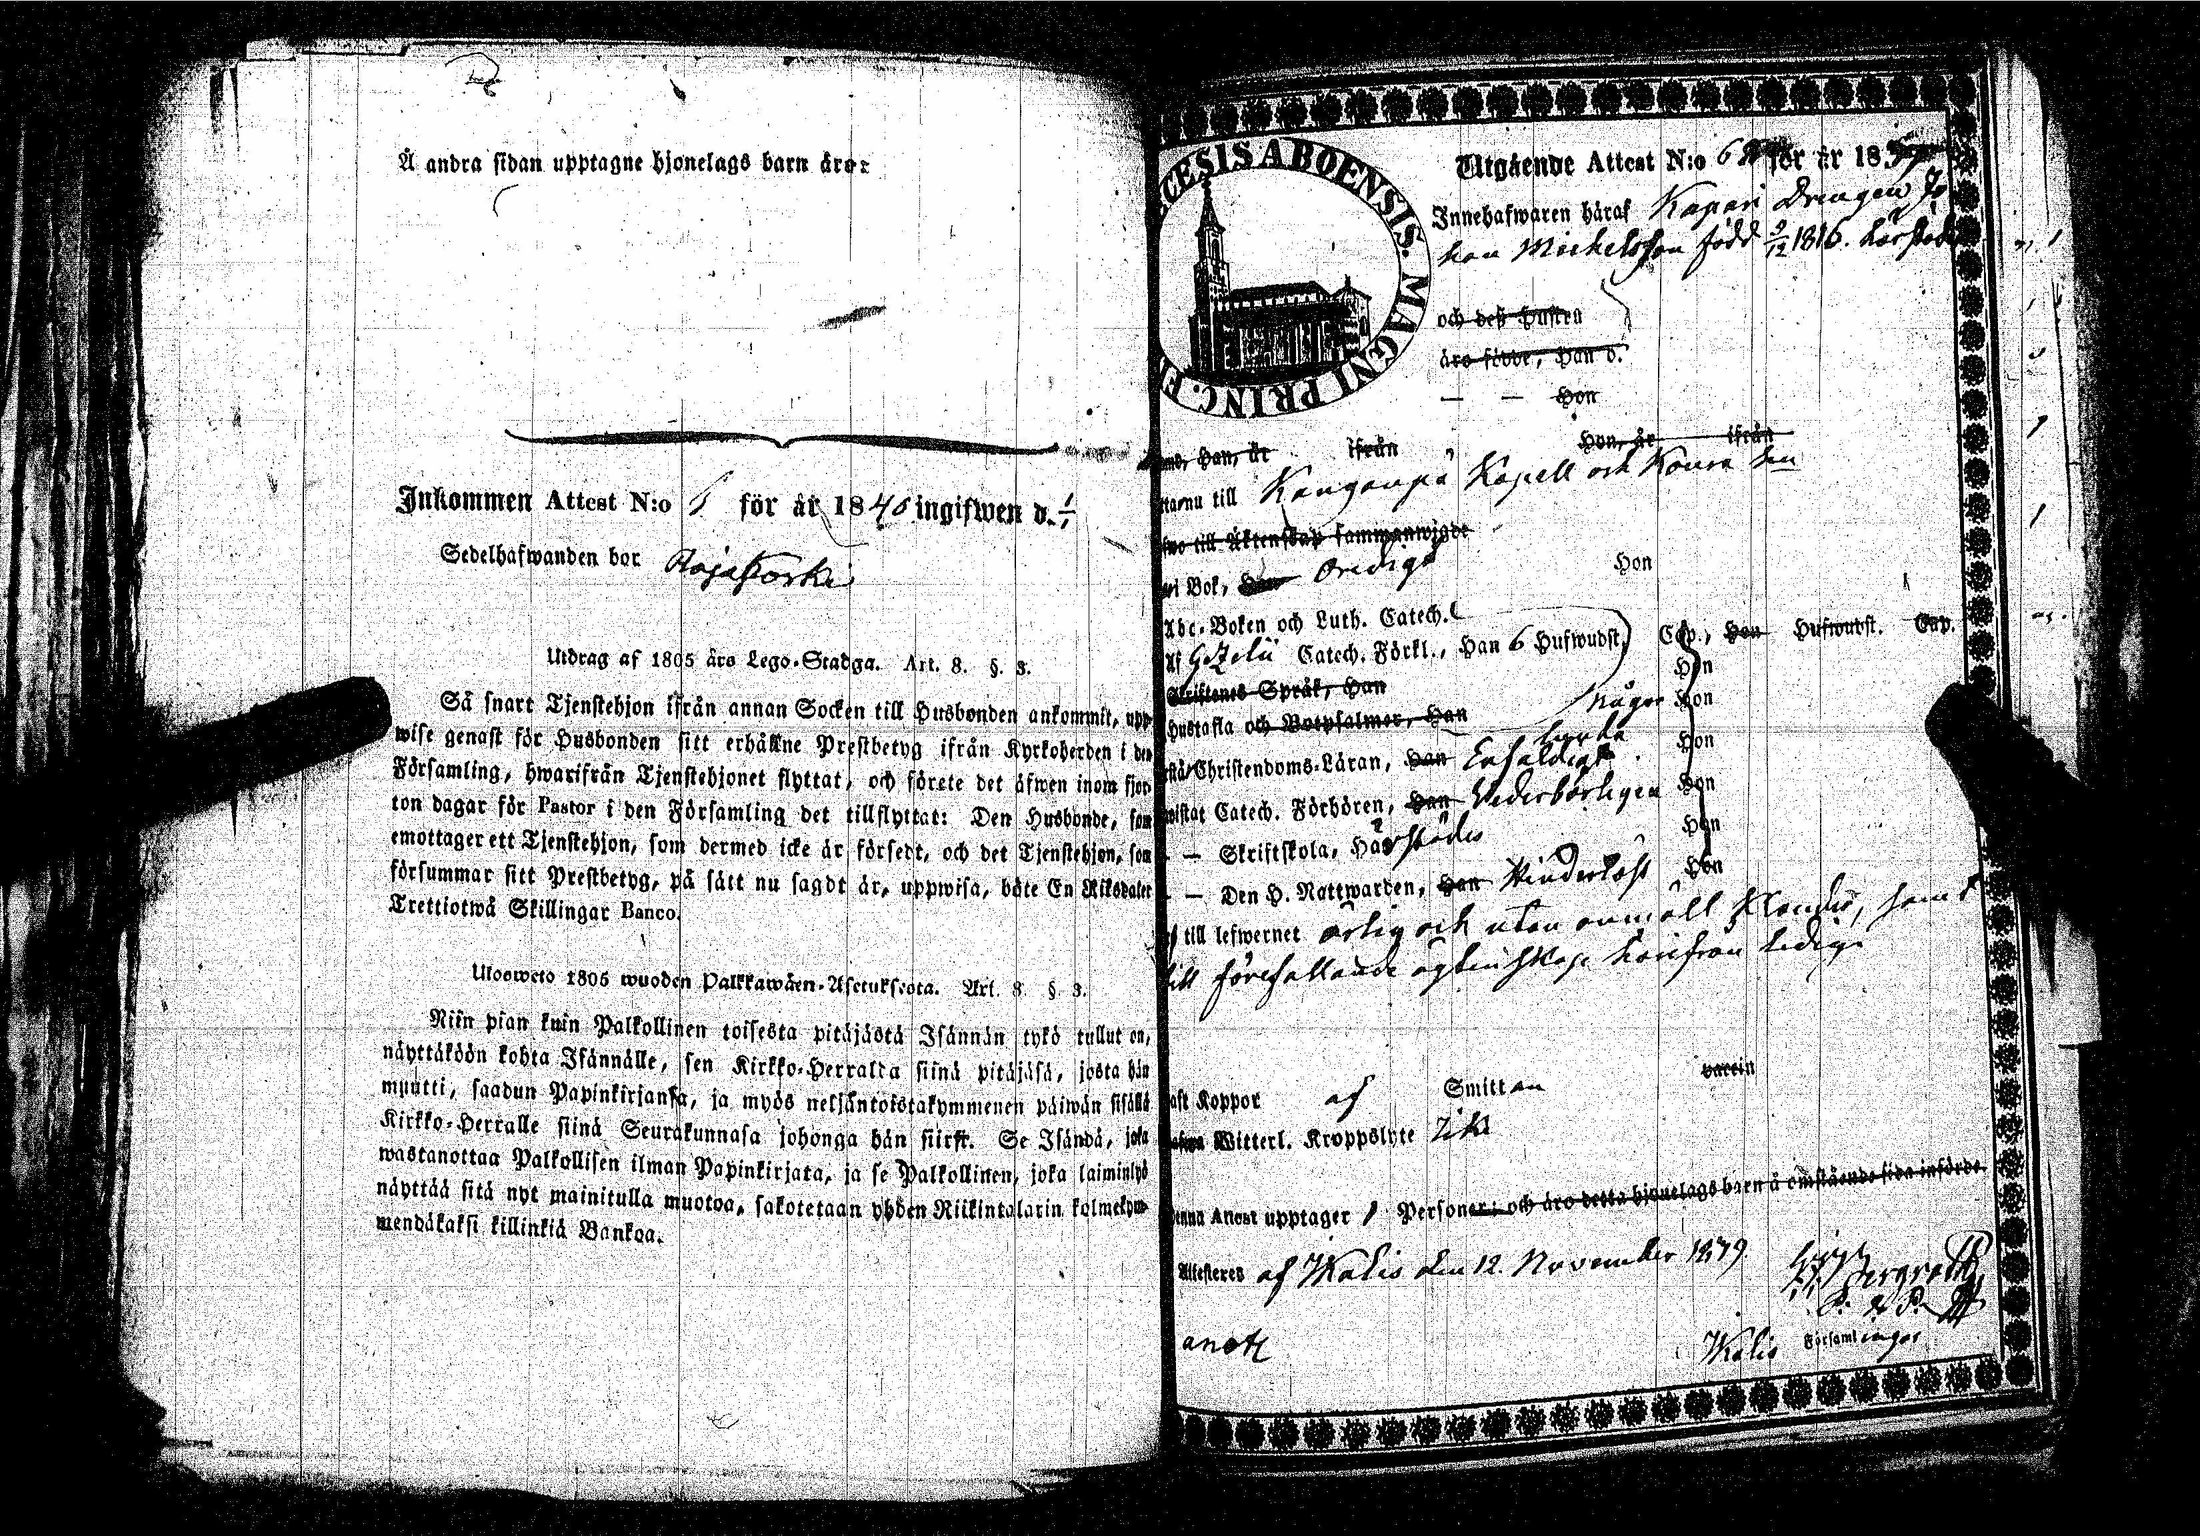 Å andra sidan upptagne hjonelags barn äro:
Inkommen Attest N:o 1 för år 1840 ingifwen d. 1/1
Sedelhafwanden bor Rajakoski
Utdrag af 1805 års Lego-Stadga. Art. 8. §. 3.
Så snart Tjenstehjon ifrån annan Socken till Husbonden ankommit, upp-
wise genast för Husbonden sitt erhållne Prestbetyg ifrån Kyrkoherden i den
Församling, hwarifrån Tjenstehjonet flyttat, och förete det äfwen inom fjor-
ton dagar för Pastor i den Församling det tillflyttat: Den Husbonde, som
emottager ett Tjenstehjon, som dermed icke är försedt, och det Tjenstehjon, som
försummar sitt Prestbetyg, på sätt nu sagdt är, uppwisa, böte En Riksdaler
Trettiotwå Skillingar Banco.
Ulosweto 1805 wuoden Palkkawäen-Asetuksesta. Art. 8 §. 3.
Niin pian kuin Palkollinen toisesta pitäjästä Isännän tykö tullut on,
näyttäköön kohta Isännälle, sen Kirkko-Herralta siinä pitäjäsä, josta hän
muutti, saadun Papinkirjansa, ja myös neljäntoistakymmenen päiwän sisällä
Kirkko-Herralle siinä Seurakunnasa johonga hän siirsi. Se Isändä, joka
wastanottaa Palkollisen ilman Papinkirjata, ja se Palkollinen, joka laiminlyö
näyttää sitä nyt mainitulla muotoa, sakotetaan yhden Riikintalarin kolmekym-
mendäkaksi killinkiä Bankoa.
CESIS ABOENSIS. MAGNI PRINC. F
Utgående Attest N:o 6 för år 18
Innehafwaren häraf Kapari Drengen Jo
han Michelsson född 9/12 1816. härstädes
och deß hustru
äro födde, Han d.
— — Hon
Han, är ifrån Hon, är ifrån
till Kangonpä Kapell och
till Äktenskap sammanwigde
i Bok, Han Hon
Abc-Boken och Luth. Catech.
Af Gezelii Catech. Förkl., Han 6 Hufwudst. Cap., Hon Hufwudst. Cap.
Skriftenes Språk, Han Hon
Hustafla och Botpsalmer, Han några Hon
Christendoms-Läran, Han Enfaldigt Hon
Catech. Förhören, Han Wederbörligen Hon
— Skriftskola, Härstädes Hon
— Den H. Nattwarden, Han Hinderlöst Hon
till lefwernet ärlig och utan anmält klander, samt
till förefallande ägtenskap härifrån ledig.
Koppor af Smittan
Witterl. Kroppslyte
Attest upptager 1 Personer; och äro detta hjonelags barn å omstående sida införde.
Attesteras af Walis den 12. November
Walis Församlingar